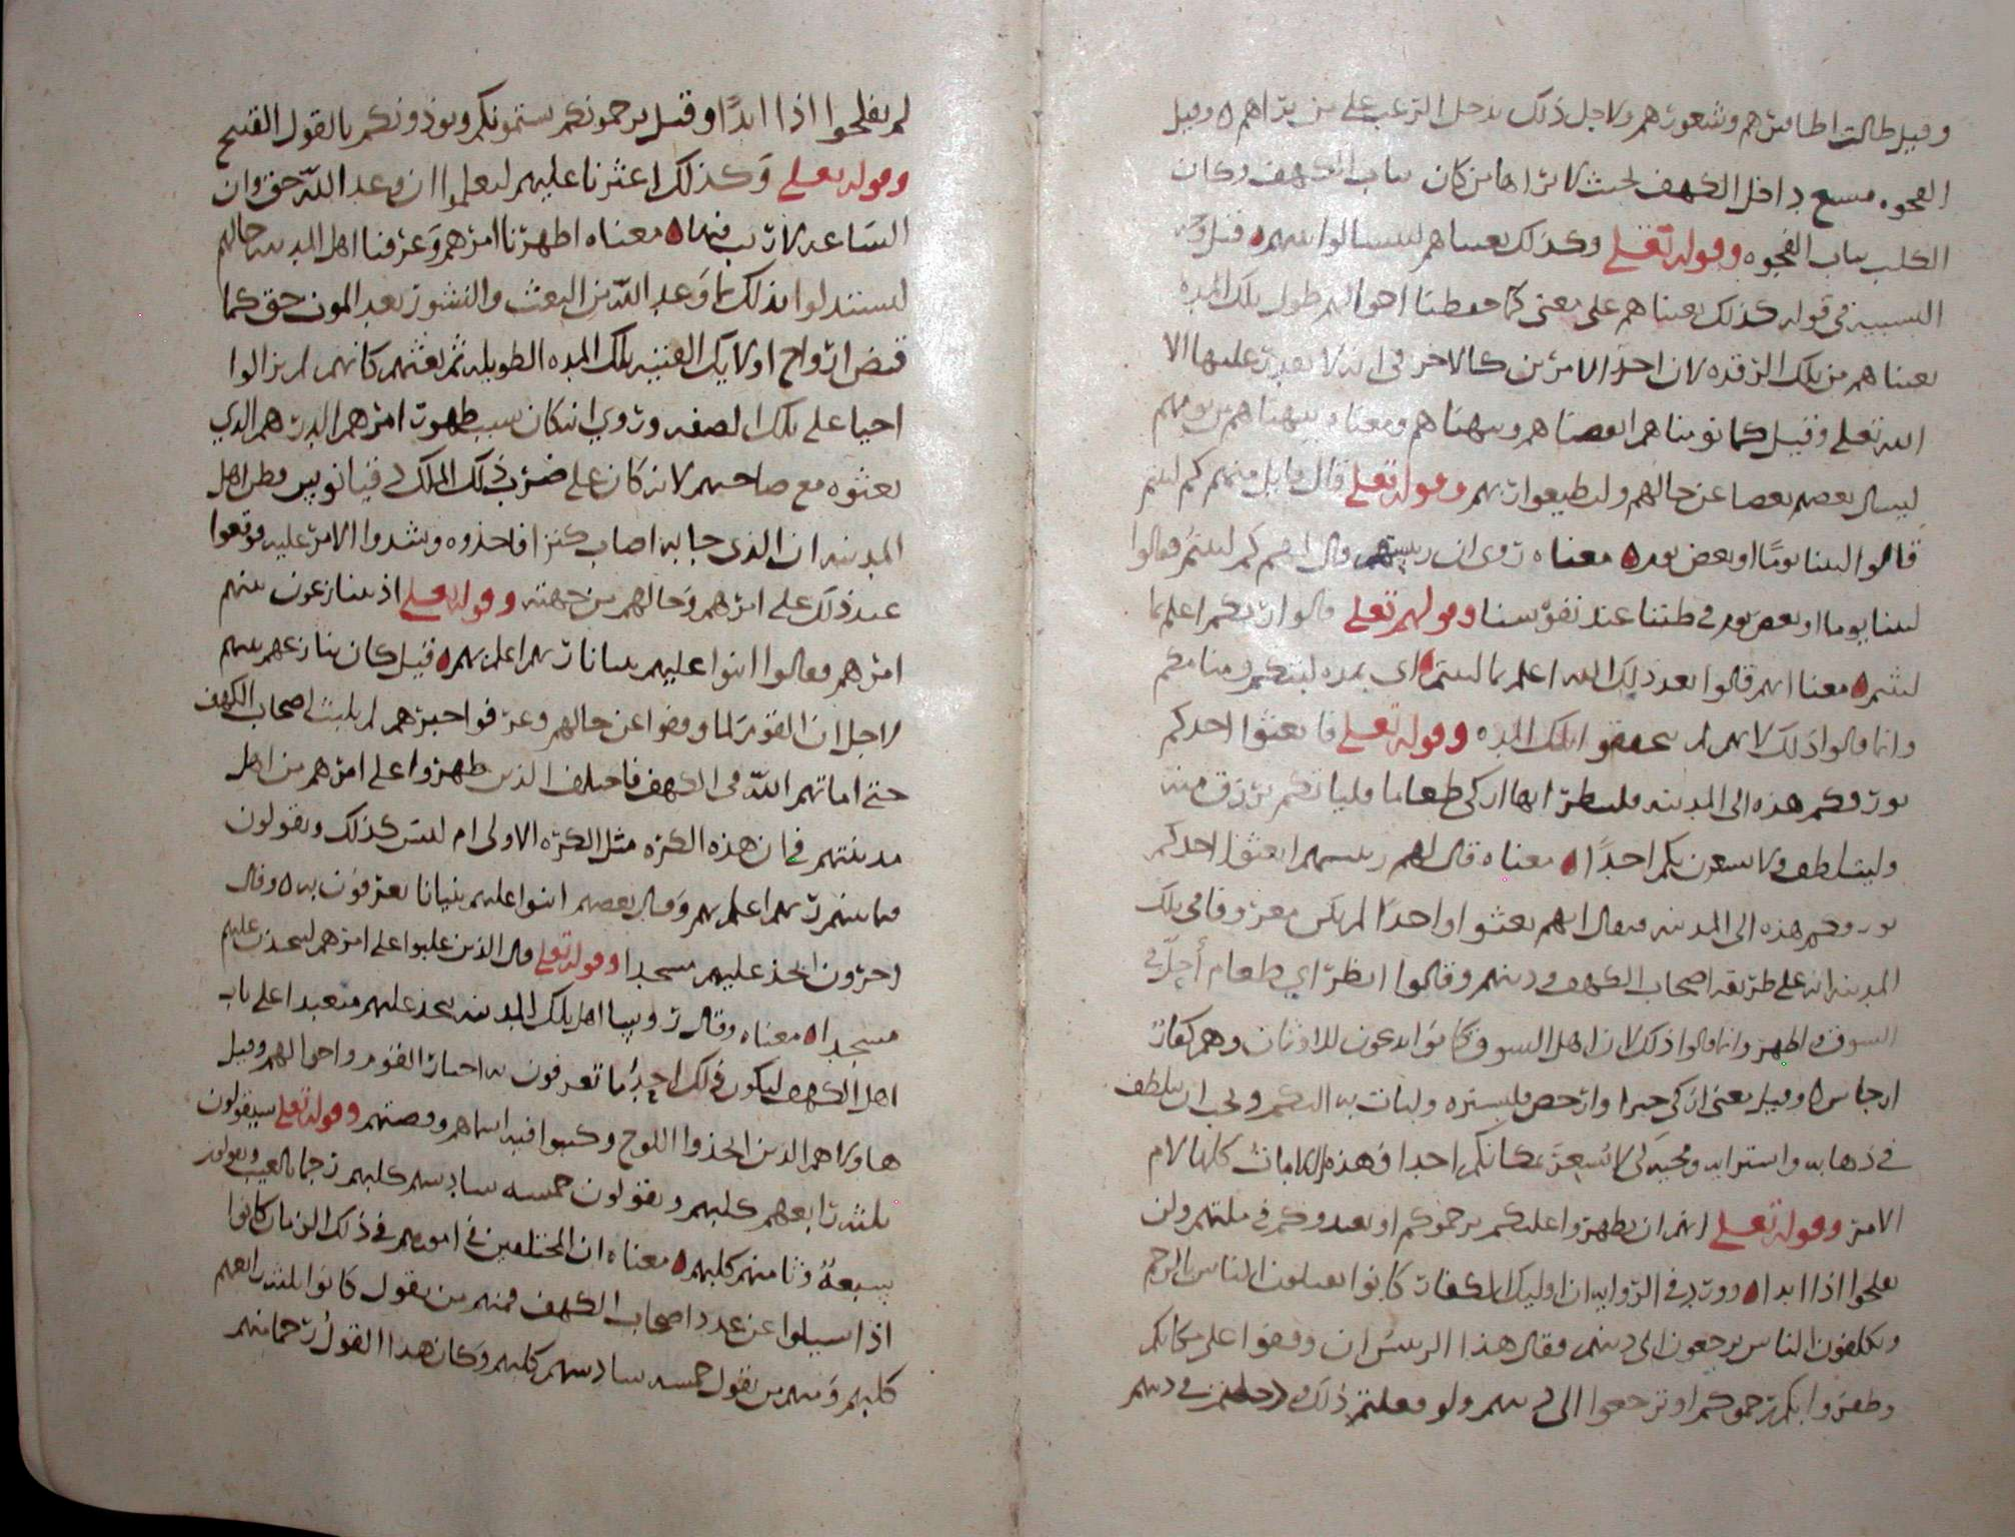 وقيل طالت اظافيرهم وشعورهم ولاجل ذلك يدخل الرعب على من يراهم ٥ وقيل
الفجوه متسع داخل الكهف بحيث لا يراها من كان بباب الكهف وكان
الكلب بباب الفجوه وقوله تعلى وكذلك بعثناهم ليتسالوا بينهم قيل وجه
التشبيه في قوله كذلك بعثناهم على معنى كما حفظنا احوالهم طول تلك المده
بعثناهم من تلك الرقده لان احد الامرين كالاخر في انه لا يقدر عليها الا
الله تعلى وقيل كما نومناهم ايقضناهم ونبهناهم ومعناه نبهناهم من نومهم
ليسال بعضهم بعضا عن حالهم وليطيعوا ربهم وقوله تعلى قال قايل منهم كم لبثتم
قالوا لبثنا يومًا او بعض يوم معناه روى ان رييسهم قال لهم كم لبثتم فقالوا
لبثنا يوما او بعض يوم في ظننا عند نفوسنا وقولهم تعلى قالوا ربكم اعلم بما
لبثتم معنا انهم قالوا بعد ذلك الله اعلم بما لبثتم اي بمده لبثكم ومنامكم
وانما قالوا ذلك لانهم لم يحققوا تلك المده وقوله تعلى فابعثوا احدكم
بورقكم هذه الى المدينه فلينظر ايها ازكى طعاما فلياتكم برزق منه
وليتلطف ولا يشعرن بكم احدًا معناه قال لهم رييسهم ابعثوا احدكم
بورقكم هذه الى المدينه فيقال انهم بعثوا واحدا لم يكن معروفا في تلك
المدينه انه على طريقه اصحاب الكهف ودينهم وقالوا انظر اي طعام أجلّ في
السوق واطهر وانما قالوا ذلك لان اهل السوق كانوا يدعون للاوثان وهم كفار
ارجاس ٥ وقيل يعنى ازكى خيرا وارخص فليشتره وليات به اليكم ويجب ان يتلطف
في ذهابه واسترابه ومجيه لكى لا يُشعِرَ بمكانكم احدا وهذه اللامات كلها لام
الامر وقوله تعلى انهم ان يظهروا عليكم يرجموكم او يعيدوكم في ملتهم ولن
تفلحوا اذا ابدا وورد في الروايه ان اوليك الكفار كانوا يقتلون الناس بالرجم
ويكلفون الناس يرجعون الى دينهم فقال هذا الرييس ان وقفوا على مكانكم
وظفروا بكم رجموكم او ترجعوا الى دينهم ولو فعلتم ذلك ودخلتم في دينهم
لم تفلحوا اذا ابدًا وقيل يرجمونكم يشتمونكم ويوذونكم بالقول القبيح
وقوله تعلى وكذلك اعثرنا عليهم ليعلموا ان وعد الله حق وان
السَاعه لا ريب فيها معناه اظهرنا امرهم وعرفنا اهل المدينه حالهم
ليستدلوا بذلك بما وَعد الله من البعث والنشور بعد الموت حق كما
قبض ارواح اولايك الفتيه تلك المده الطويله ثم بعثهم كانهم لم يزالوا
احيا على تلك الصفه وروي انه كان سبب ظهور امرهم الدرهم الذي
بعثوه مع صاحبهم لانه كان على ضرب ذلك الملك دقيانوس وظن اهل
المدينه ان الذى جا به اصاب كنزا فاخذوه وشددوا الامر عليه فوقعوا
عند ذلك على امرهم وحالهم من جهته وقوله تعلى اذ يتنازعون بينهم
امرهم فقالوا ابنوا عليهم بنيانا ربهم اعلم بهم قيل كان تنازعهم بينهم
لاجل ان القوم لما وقفوا عن حالهم وعرفوا خبرهم لم يلبث اصحاب الكهف
حتى اماتهم الله في الكهف فاختلف الذين ظهروا على امرهم من اهل
مدينتهم في ان هذه الكره مثل الكره الاولى ام ليس كذلك ويقولون
فيما بينهم ربهم اعلم بهم وقال بعضهم ابنوا عليهم بنيانا يعرفون به ٥ وقال
اخرون اتخذ عليهم مسجدا وقوله تعلى قال الذين غلبوا على امرهم لنتخذن عليهم
مسجدا معناه وقال روسا اهل تلك المدينه نتخذ عليهم متعبدا على باب
اهل الكهف ليكون ذلك احد ما تعرفون به اخبار القوم واحوالهم وقيل
هاولاهم الذين اتخذوا اللوح وكتبوا فيه اسماهم وقصتهم وقوله تعلى سيقولون
ثلثه رابعهم كلبهم ويقولون خمسه سادسهم كلبهم رجما بالغيب ويقولون
سبعةٌ وثامنهم كلبهم معناه ان المختلفين في امورهم في ذلك الزمان كانوا
اذا سيلوا عن عدد اصحاب الكهف فمنهم من يقول كانوا ثلثه رابعهم
كلبهم ومنهم من يقول خمسه سادسهم كلبهم وكان هذا القول رجما منهم